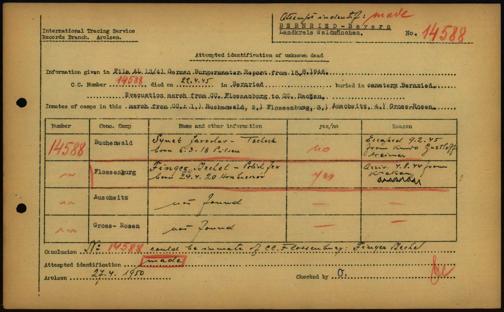 Attempt indentif.: made
International Tracing Service
Records Branch. Arolsen.
BERNRIED-Bayern
Landkreis Waldmünchen.
No. 14588
Attempted identification of unknown dead
Information given in File AL 13/41 German Burgermaster Report from 15.8.1948.
C.C. Number 14588 died on 22.4.45 in Bernried buried in cemetery Bernried.
Evacuation march from CC. Flossenburg to CC. Dachau.
Inmates of camps in this march from CC.: 1.) Buchenwald, 2.) Flossenburg, 3.) Auschwitz, 4.) Gross-Rosen.
Number Conc. Camp Name and other information yes/no Reason
14588 Buchenwald Jaroslav - Tschech no 9.2.45
born 6.3.18 Pilsen from
" Flossenburg Finger Bechel - yes 4.8.44 from
born 24.4.20
Auschwitz not found
" Gross-Rosen not found
Conclusion No 14588 could be inmate of CC. Flossenburg: Finger Bechel
Attempted identification made
Arolsen 27.4. 1950 Checked by